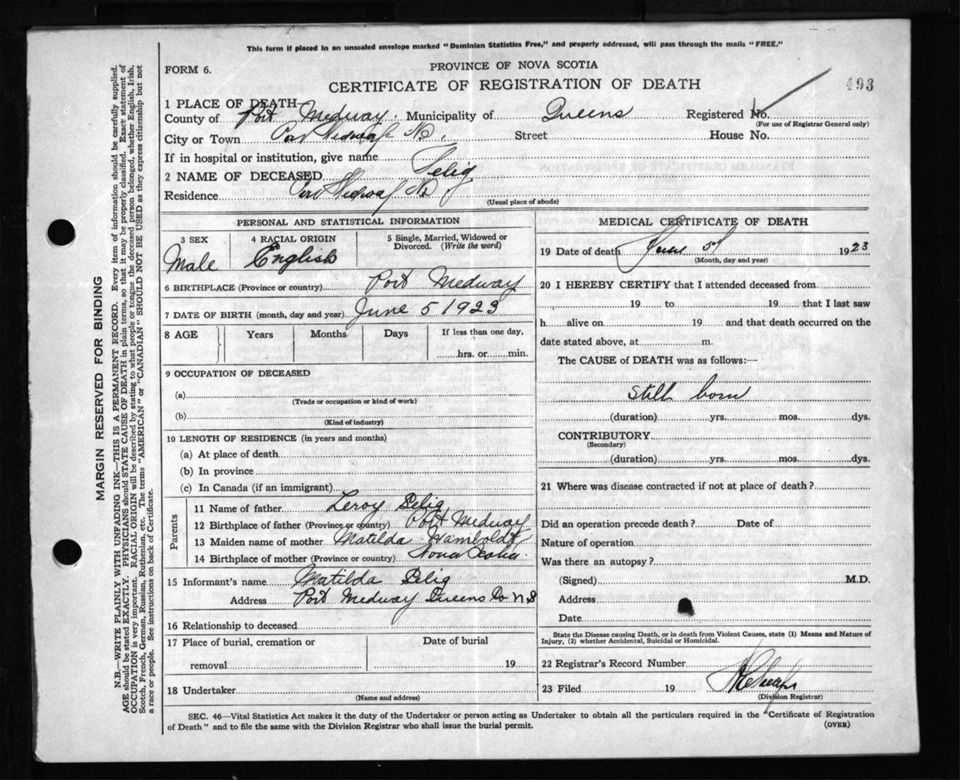 This form if placed in an unsealed envelope marked "Dominion Statistics Free," and properly addressed, will pass through the mails "FREE."
FORM 6.
PROVINCE OF NOVA SCOTIA
CERTIFICATE OF REGISTRATION OF DEATH
493
1 PLACE OF DEATH
County of Port Medway. Municipality of Queens Registered No.
(For use of Registrar General only)
City or Town Port Medway N.S. Street House No.
If in hospital or institution, give name
2 NAME OF DECEASED Selig
Residence Port Medway NS
(Usual place of abode)
PERSONAL AND STATISTICAL INFORMATION
3 SEX 4 RACIAL ORIGIN 5 Single, Married, Widowed or Divorced. (Write the word)
Male English
6 BIRTHPLACE (Province or country) Port Medway
7 DATE OF BIRTH (month, day and year) June 5 1923
8 AGE Years Months Days If less than one day,
hrs. or min.
9 OCCUPATION OF DECEASED
(a)
(Trade or occupation or kind of work)
(b)
(Kind of industry)
10 LENGTH OF RESIDENCE (in years and months)
(a) At place of death
(b) In province
(c) In Canada (if an immigrant)
Parents
11 Name of father Leroy Selig
12 Birthplace of father (Province or country) Port Medway
13 Maiden name of mother Matilda Hamboldt
14 Birthplace of mother (Province or country) Nova Scotia
15 Informant's name Matilda Selig
Address Port Medway Queens Co N S
16 Relationship to deceased
17 Place of burial, cremation or removal Date of burial
19
18 Undertaker
(Name and address)
MEDICAL CERTIFICATE OF DEATH
19 Date of death June 5 1923
(Month, day and year)
20 I HEREBY CERTIFY that I attended deceased from
19 to 19 that I last saw
h alive on 19 and that death occurred on the
date stated above, at m.
The CAUSE of DEATH was as follows:—
Still born
(duration) yrs. mos. dys.
CONTRIBUTORY
(Secondary)
(duration) yrs. mos. dys.
21 Where was disease contracted if not at place of death?
Did an operation precede death? Date of
Nature of operation
Was there an autopsy?
(Signed) M.D.
Address
Date
State the Disease causing Death, or in death from Violent Causes, state (1) Means and Nature of
Injury, (2) whether Accidental, Suicidal or Homicidal.
22 Registrar's Record Number
23 Filed 19
(Division Registrar)
SEC. 46—Vital Statistics Act makes it the duty of the Undertaker or person acting as Undertaker to obtain all the particulars required in the "Certificate of Registration
of Death" and to file the same with the Division Registrar who shall issue the burial permit.
(OVER)
MARGIN RESERVED FOR BINDING
N.B.—WRITE PLAINLY WITH UNFADING INK—THIS IS A PERMANENT RECORD. Every item of information should be carefully supplied.
AGE should be stated EXACTLY. PHYSICIANS should STATE CAUSE OF DEATH in plain terms, so that it may be properly classified. Exact statement of
OCCUPATION is very important. RACIAL ORIGIN will be described by stating to what people or tongue the deceased person belonged, whether English, Irish,
Scotch, French, German, Russian, Ruthenian, etc. The terms "AMERICAN" or "CANADIAN" SHOULD NOT BE USED as they express citizenship but not
a race or people. See instructions on back of Certificate.